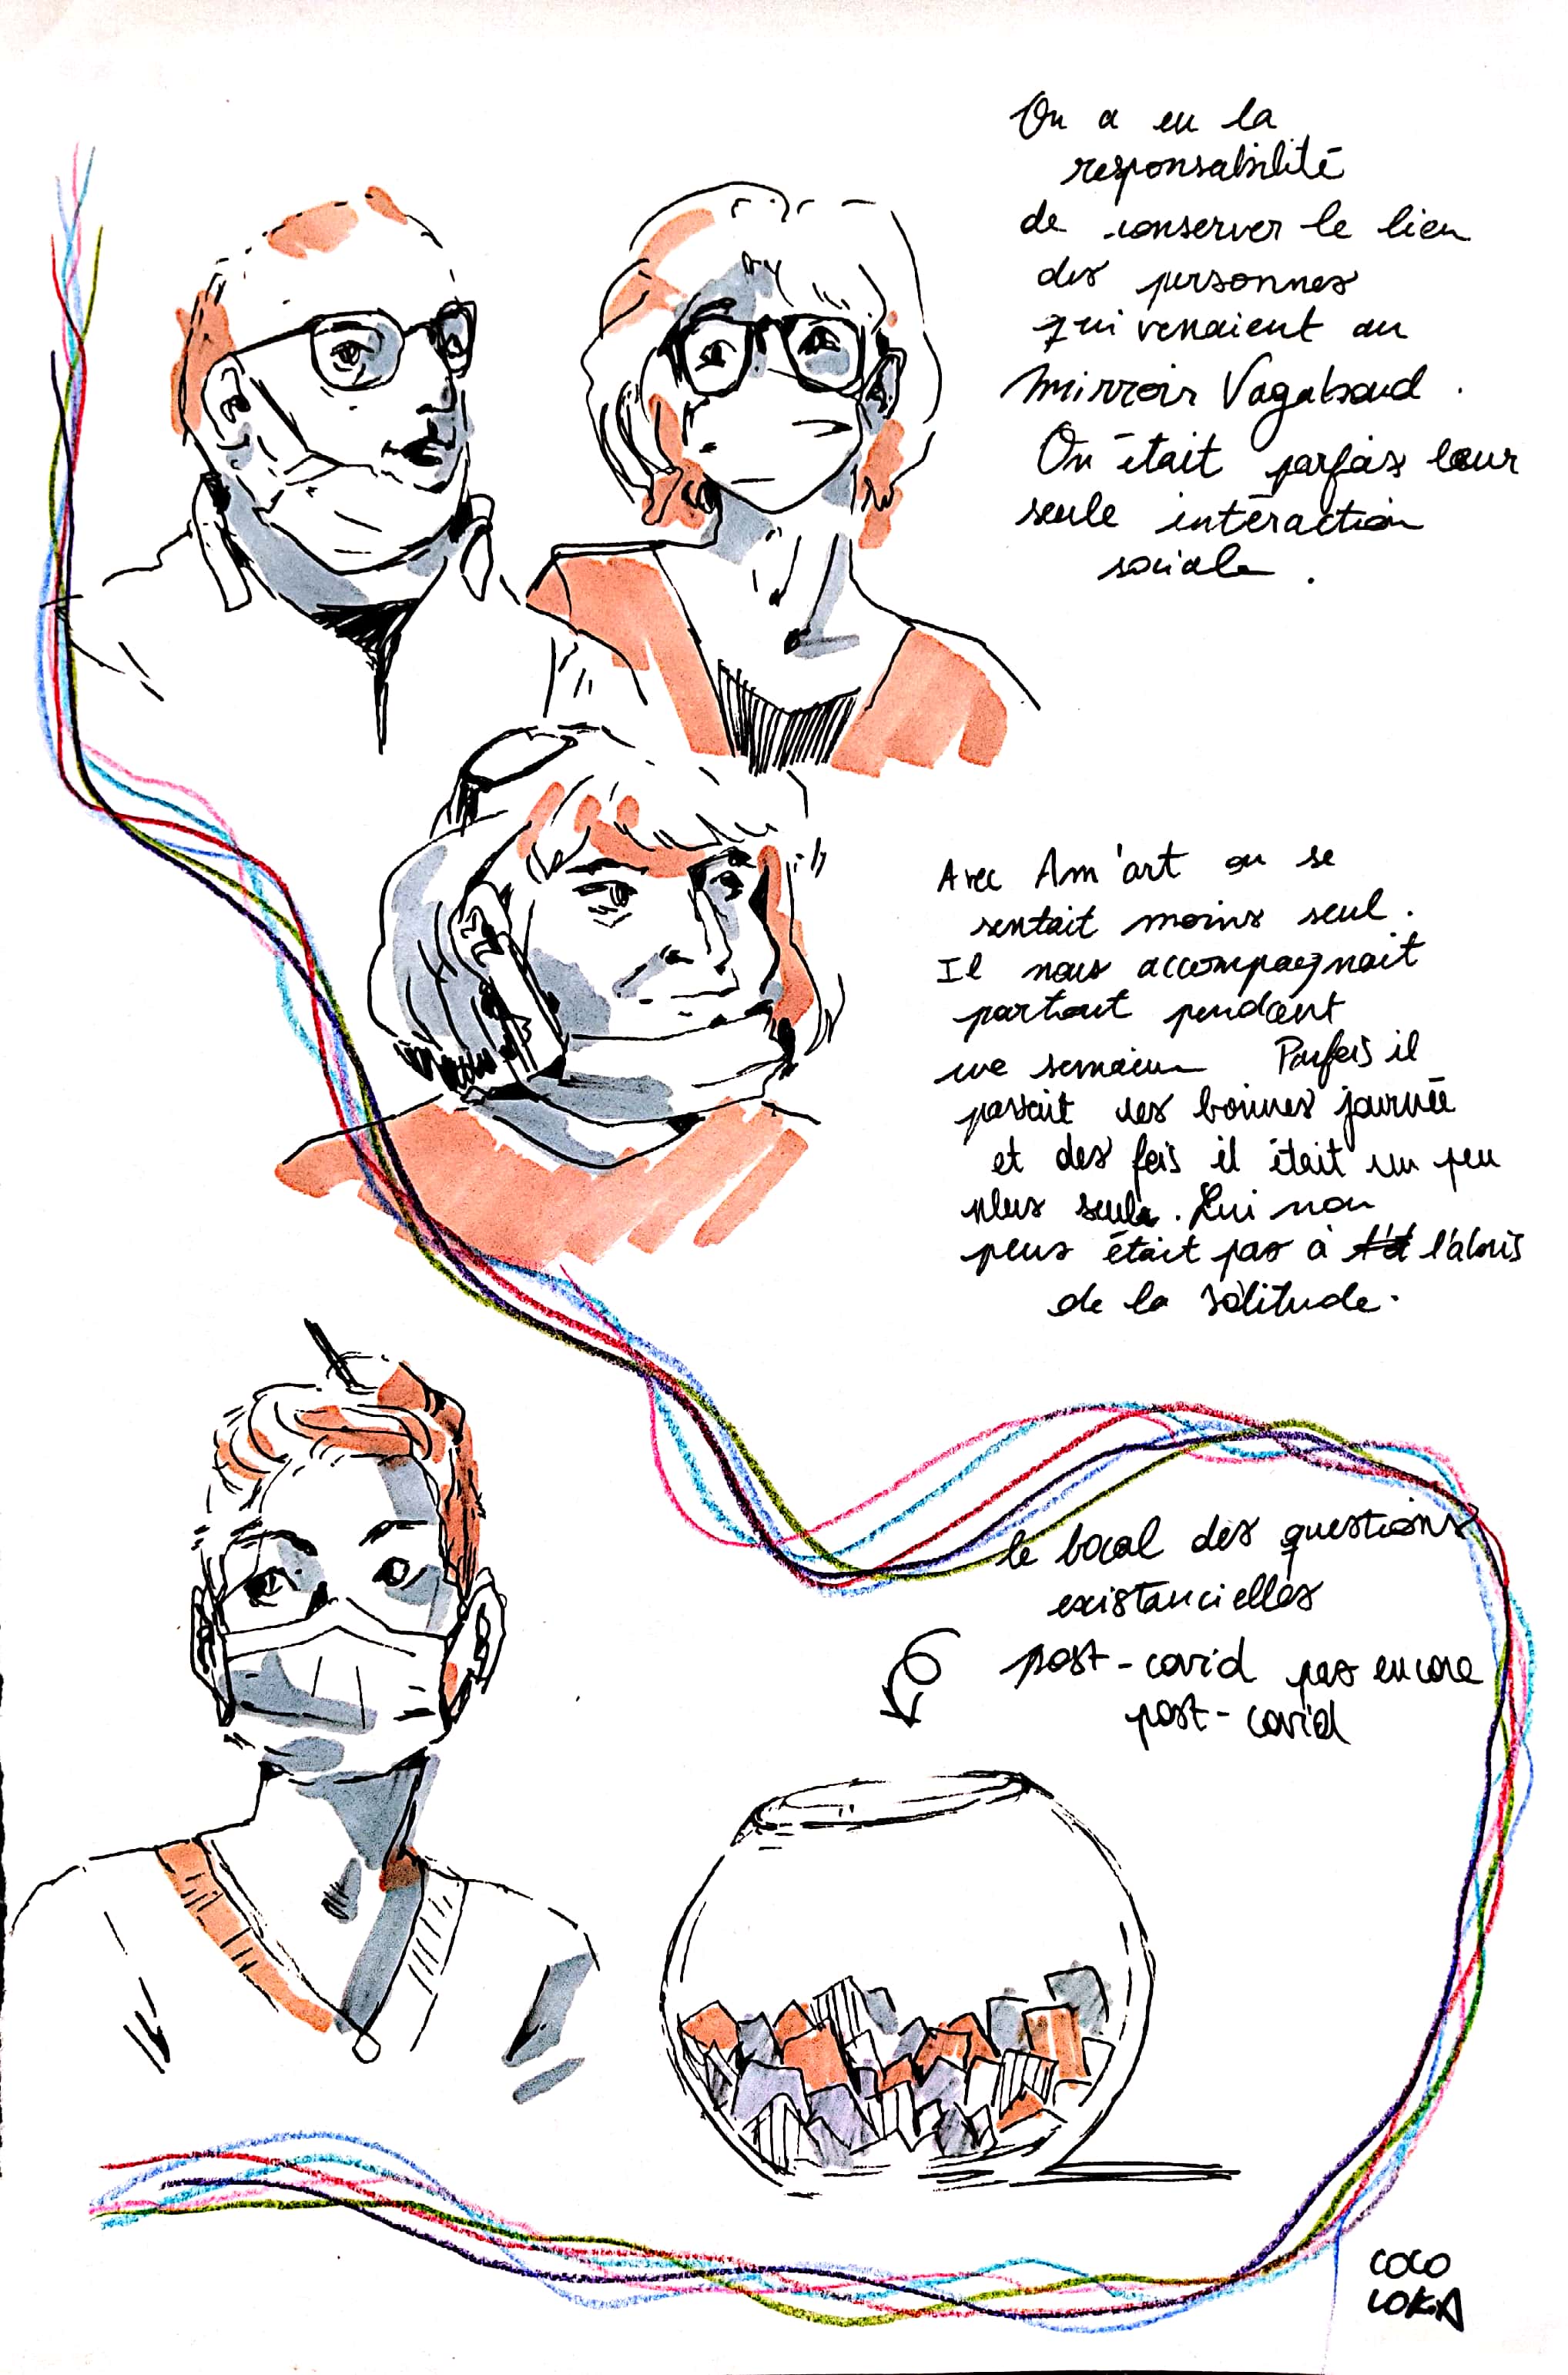 On a eu la
responsabilité
de conserver le lien
des personnes
qui venaient au
Mirroir Vagabond.
On était parfois leur
seule intéraction
sociale.
Avec Am'art on se
sentait moins seul.
Il nous accompagnait
partout pendant
une semaine Parfois il
passait des bonnes journée
et des fois il était un peu
plus seule. Lui non
plus était pas à l'abris
de la solitude.
le bocal des questions
existancielles
post-covid pas encore
post-covid
COCO
LOKA